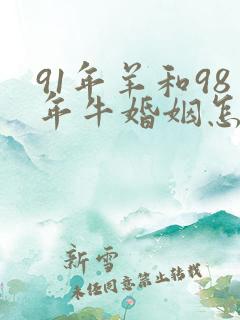 91年羊和98
年牛婚姻怎
新雪
未经同意禁止转载